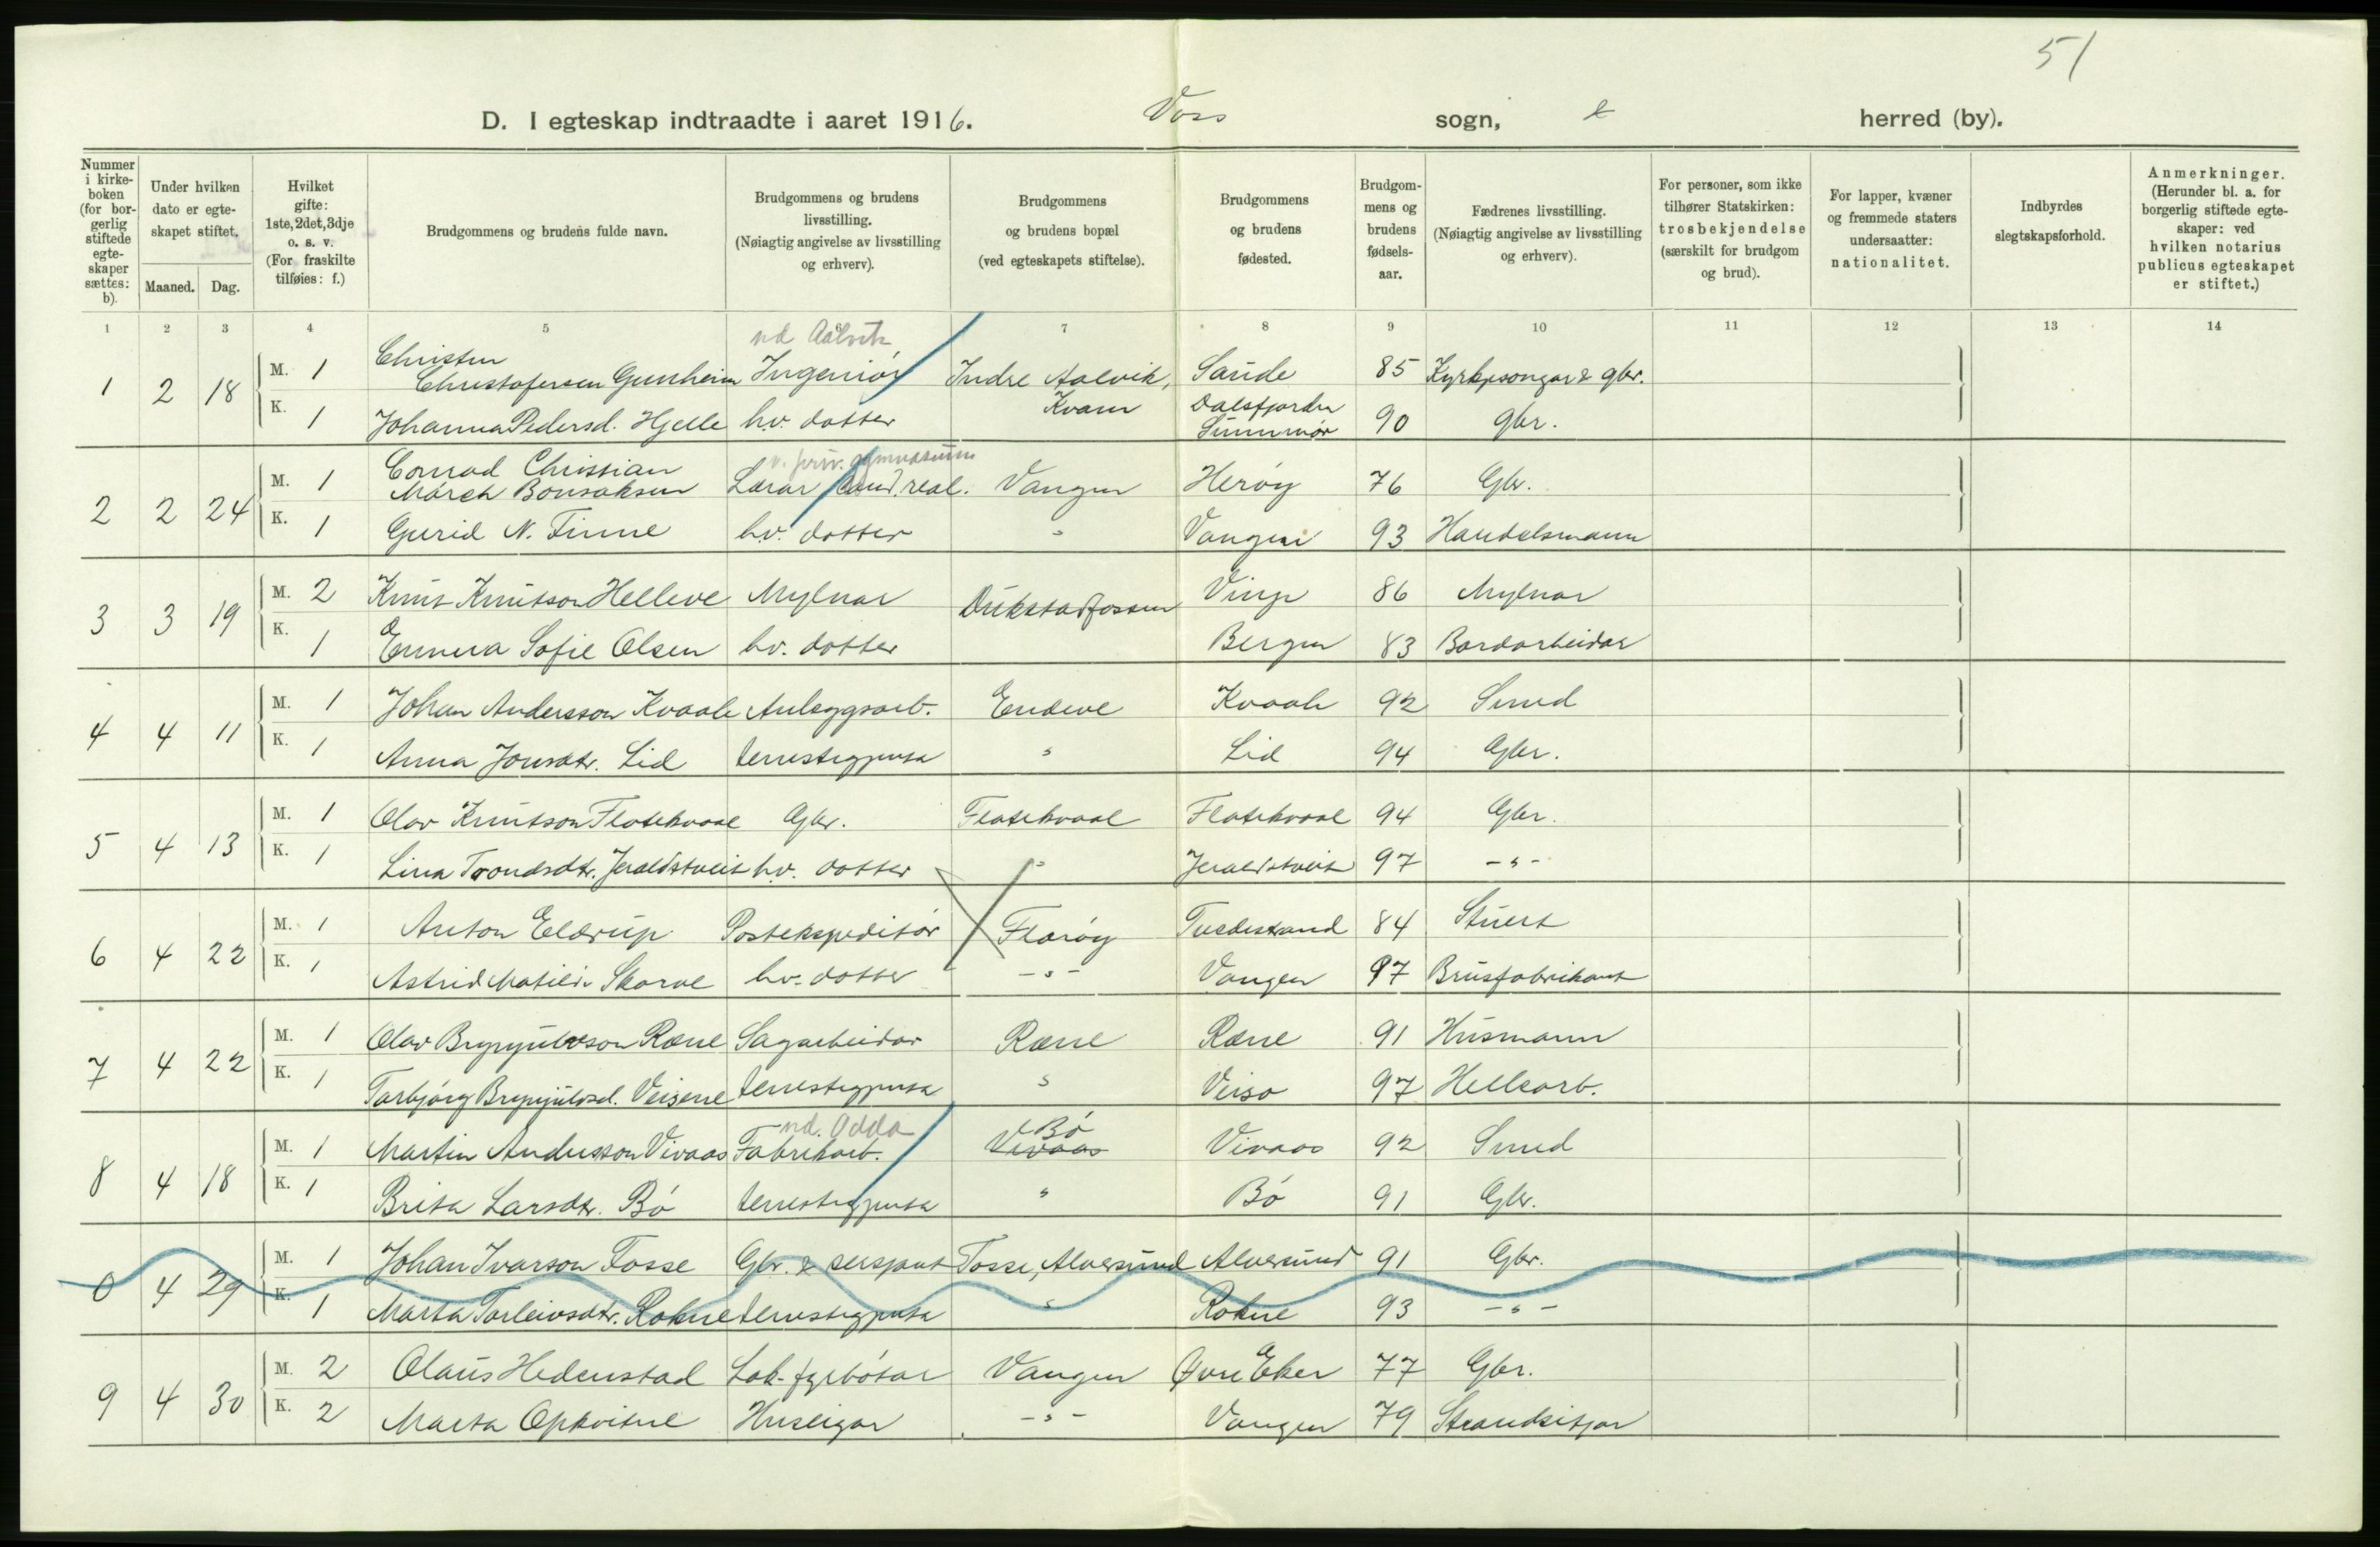 51
D. I egteskap indtraadte i aaret 1916. Voss sogn, & herred (by).
Nummer i kirkeboken (for borgerlig stiftede egteskaper sættes: b).
Under hvilken dato er egteskapet stiftet.
Maaned. Dag.
Hvilket gifte: 1ste, 2det, 3dje o. s. v. (For fraskilte tilføies: f.)
Brudgommens og brudens fulde navn.
Brudgommens og brudens livsstilling. (Nøiagtig angivelse av livsstilling og erhverv).
Brudgommens og brudens bopæl (ved egteskapets stiftelse).
Brudgommens og brudens fødested.
Brudgommens og brudens fødselsaar.
Fædrenes livsstilling. (Nøiagtig angivelse av livsstilling og erhverv).
For personer, som ikke tilhører Statskirken: trosbekjendelse (særskilt for brudgom og brud).
For lapper, kvæner og fremmede staters undersaatter: nationalitet.
Indbyrdes slegtskapsforhold.
Anmerkninger. (Herunder bl. a. for borgerlig stiftede egteskaper: ved hvilken notarius publicus egteskapet er stiftet.)
1 2 3 4 5 6 7 8 9 10 11 12 13 14
vd Aalvik
1 2 18 M. 1 Christen Christofersen Gunheim Ingeniør Indre Aalvik, Kvam Sande 85 Kyrkjesongar & gbr.
K. 1 Johanna Pedersd. Hjelle hv. dotter Dalsfjorden Sunnmør 90 gbr.
v. priv. gymnasium
2 2 24 M. 1 Conrad Christian March Bonsaksen Lærar cand. real. Vangen Herøy 76 Gbr.
K. 1 Gurid N. Finne hv. dotter " Vangen 93 Handelsmann
3 3 19 M. 2 Knut Knutson Helleve Mylnar Dukstadfossen Vinje 86 Mylnar
K. 1 Emma Sofie Olsen hv. dotter Bergen 83 Bordarbeidar
4 4 11 M. 1 Johan Andersson Kvaale Anleggsarb. Endeve Kvaale 92 Smed
K. 1 Anna Jonsdtr. Lid tenestegjenta " Lid 94 Gbr.
5 4 13 M. 1 Olav Knutson Flatekvaal Gbr. Flatekvaal Flatekvaal 94 Gbr.
K. 1 Lina Trondsdtr. Jeraldstveit hv. dotter " Jeraldstveit 97 - " -
6 4 22 M. 1 Anton Eldrup Postekspeditør Florøy Tvedestrand 84 Stuert
K. 1 Astrid Matilde Skorve hv. dotter - " - Vangen 97 Brusfabrikant
7 4 22 M. 1 Olav Brynjulvson Rene Sagarbeidar Rene Rene 91 Husmann
K. 1 Torbjørg Brynjulvsd. Veisene tenestegjenta " Veiso 97 Hellearb.
vd. Odda
8 4 18 M. 1 Martin Andersson Vivaas Fabrikarb. Vivaas Bø Vivaas 92 Smed
K. 1 Brita Larsdtr. Bø tenestegjenta " Bø 91 Gbr.
0 4 29 M. 1 Johan Ivarson Fosse Gbr. & sersjant Fosse, Alversund Alversund 91 Gbr.
K. 1 Marta Torleivsdtr. Rokne tenestegjenta " Rokne 93 - " -
9 4 30 M. 2 Olaus Hedenstad Lok-fyrbøtar Vangen Øvre Eker 77 Gbr.
K. 2 Marta Opkvitne Huseigar - " - Vangen 79 Strandsitjar